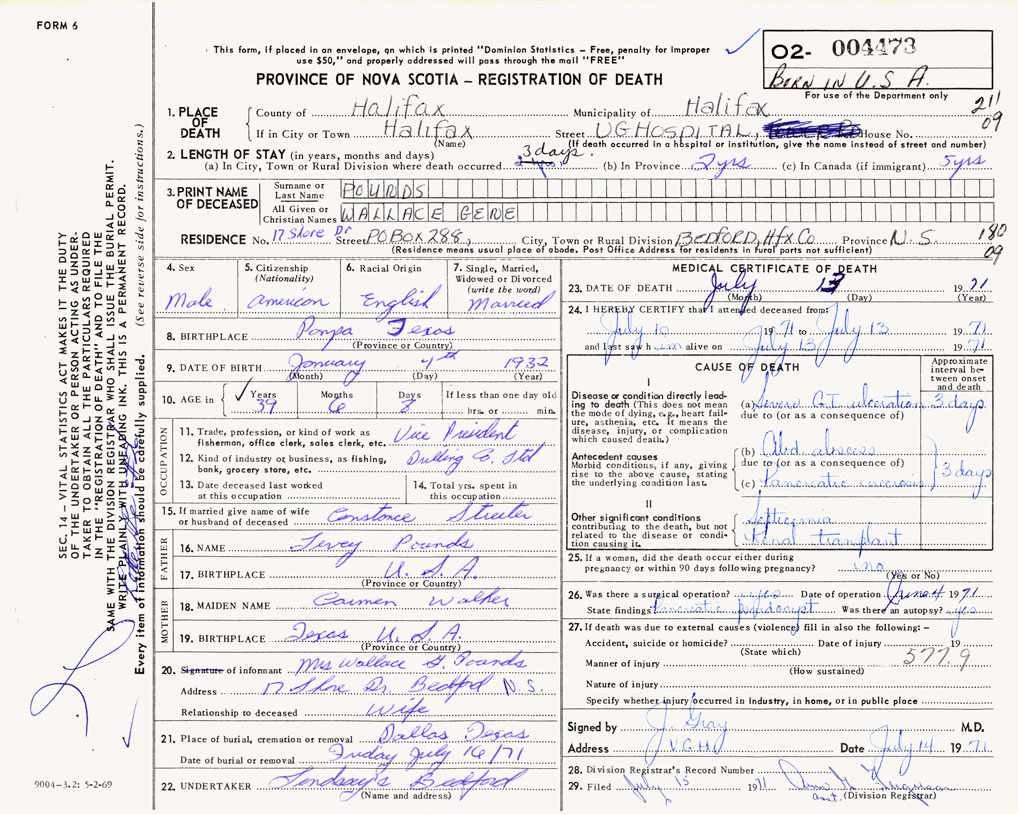 FORM 6
This form, if placed in an envelope, on which is printed "Dominion Statistics – Free, penalty for improper
use $50," and properly addressed will pass through the mail "FREE"
PROVINCE OF NOVA SCOTIA – REGISTRATION OF DEATH
02- 004473
BORN IN U.S.A.
For use of the Department only
211
09
1. PLACE OF DEATH
County of Halifax Municipality of Halifax
If in City or Town Halifax Street V.G HOSPITAL, House No.
(Name) (If death occurred in a hospital or institution, give the name instead of street and number)
2. LENGTH OF STAY (in years, months and days)
(a) In City, Town or Rural Division where death occurred 3 days. (b) In Province 2 yrs (c) In Canada (if immigrant) 5 yrs
3. PRINT NAME OF DECEASED
Surname or Last Name POUNDS
All Given or Christian Names WALLACE GENE
RESIDENCE No. 17 Shore Dr Street PO BOX 288, City, Town or Rural Division BEDFORD, Hfx. Co. Province N.S.
180
09
(Residence means usual place of abode. Post Office Address for residents in rural parts not sufficient)
4. Sex
Male
5. Citizenship
(Nationality)
American
6. Racial Origin
English
7. Single, Married,
Widowed or Divorced
(write the word)
Married
8. BIRTHPLACE Pampa Texas
(Province or Country)
9. DATE OF BIRTH January 4th 1932
(Month) (Day) (Year)
10. AGE in Years Months Days If less than one day old
39 6 8 hrs. or min.
OCCUPATION
11. Trade, profession, or kind of work as
fisherman, office clerk, sales clerk, etc. Vice President
12. Kind of industry or business, as fishing,
bank, grocery store, etc. Drilling Co. Ltd
13. Date deceased last worked
at this occupation
14. Total yrs. spent in
this occupation
15. If married give name of wife
or husband of deceased Constance Streeter
FATHER
16. NAME Levey Pounds
17. BIRTHPLACE U.S.A.
(Province or Country)
MOTHER
18. MAIDEN NAME Carmen Walker
19. BIRTHPLACE Texas U.S.A.
(Province or Country)
20. Signature of informant Mrs Wallace G. Pounds
Address 17 Shore Dr. Bedford N.S.
Relationship to deceased Wife
21. Place of burial, cremation or removal Dallas Texas
Date of burial or removal Friday July 16/71
22. UNDERTAKER Lindsay's Bedford
(Name and address)
MEDICAL CERTIFICATE OF DEATH
23. DATE OF DEATH July 13 1971
(Month) (Day) (Year)
24. I HEREBY CERTIFY that I attended deceased from:
July 10 1971 to July 13 1971
and last saw him alive on July 13 1971
CAUSE OF DEATH
Approximate
interval be-
tween onset
and death
I
Disease or condition directly lead-
ing to death (This does not mean
the mode of dying, e.g., heart fail-
ure, asthenia, etc. It means the
disease, injury, or complication
which caused death.)
(a) Severe G.I. ulceration 3 days
due to (or as a consequence of)
Antecedent causes
Morbid conditions, if any, giving
rise to the above cause, stating
the underlying condition last.
(b) Abd abscess
due to (or as a consequence of)
(c) Pancreatic necrosis
3 days
II
Other significant conditions
contributing to the death, but not
related to the disease or condi-
tion causing it.
Septicemia
Renal transplant
25. If a woman, did the death occur either during
pregnancy or within 90 days following pregnancy? no
(Yes or No)
26. Was there a surgical operation? yes Date of operation June 4 1971
State findings Pancreatic pseudocyst Was there an autopsy? yes
27. If death was due to external causes (violence) fill in also the following: –
Accident, suicide or homicide? Date of injury 19
(State which)
577.9
Manner of injury
(How sustained)
Nature of injury
Specify whether injury occurred in industry, in home, or in public place
Signed by J. Gray M.D.
Address V.G.H. Date July 14 1971
28. Division Registrar's Record Number
29. Filed July 15 1971 Ann G Ferguson
asst. (Division Registrar)
SEC. 14 – VITAL STATISTICS ACT MAKES IT THE DUTY
OF THE UNDERTAKER OR PERSON ACTING AS UNDER-
TAKER TO OBTAIN ALL THE PARTICULARS REQUIRED
IN THE "REGISTRATION OF DEATH" AND TO FILE THE
SAME WITH THE DIVISION REGISTRAR WHO SHALL ISSUE THE BURIAL PERMIT.
WRITE PLAINLY WITH UNFADING INK. THIS IS A PERMANENT RECORD.
Every item of information should be carefully supplied. (See reverse side for instructions.)
9004-3.2: 5-2-69